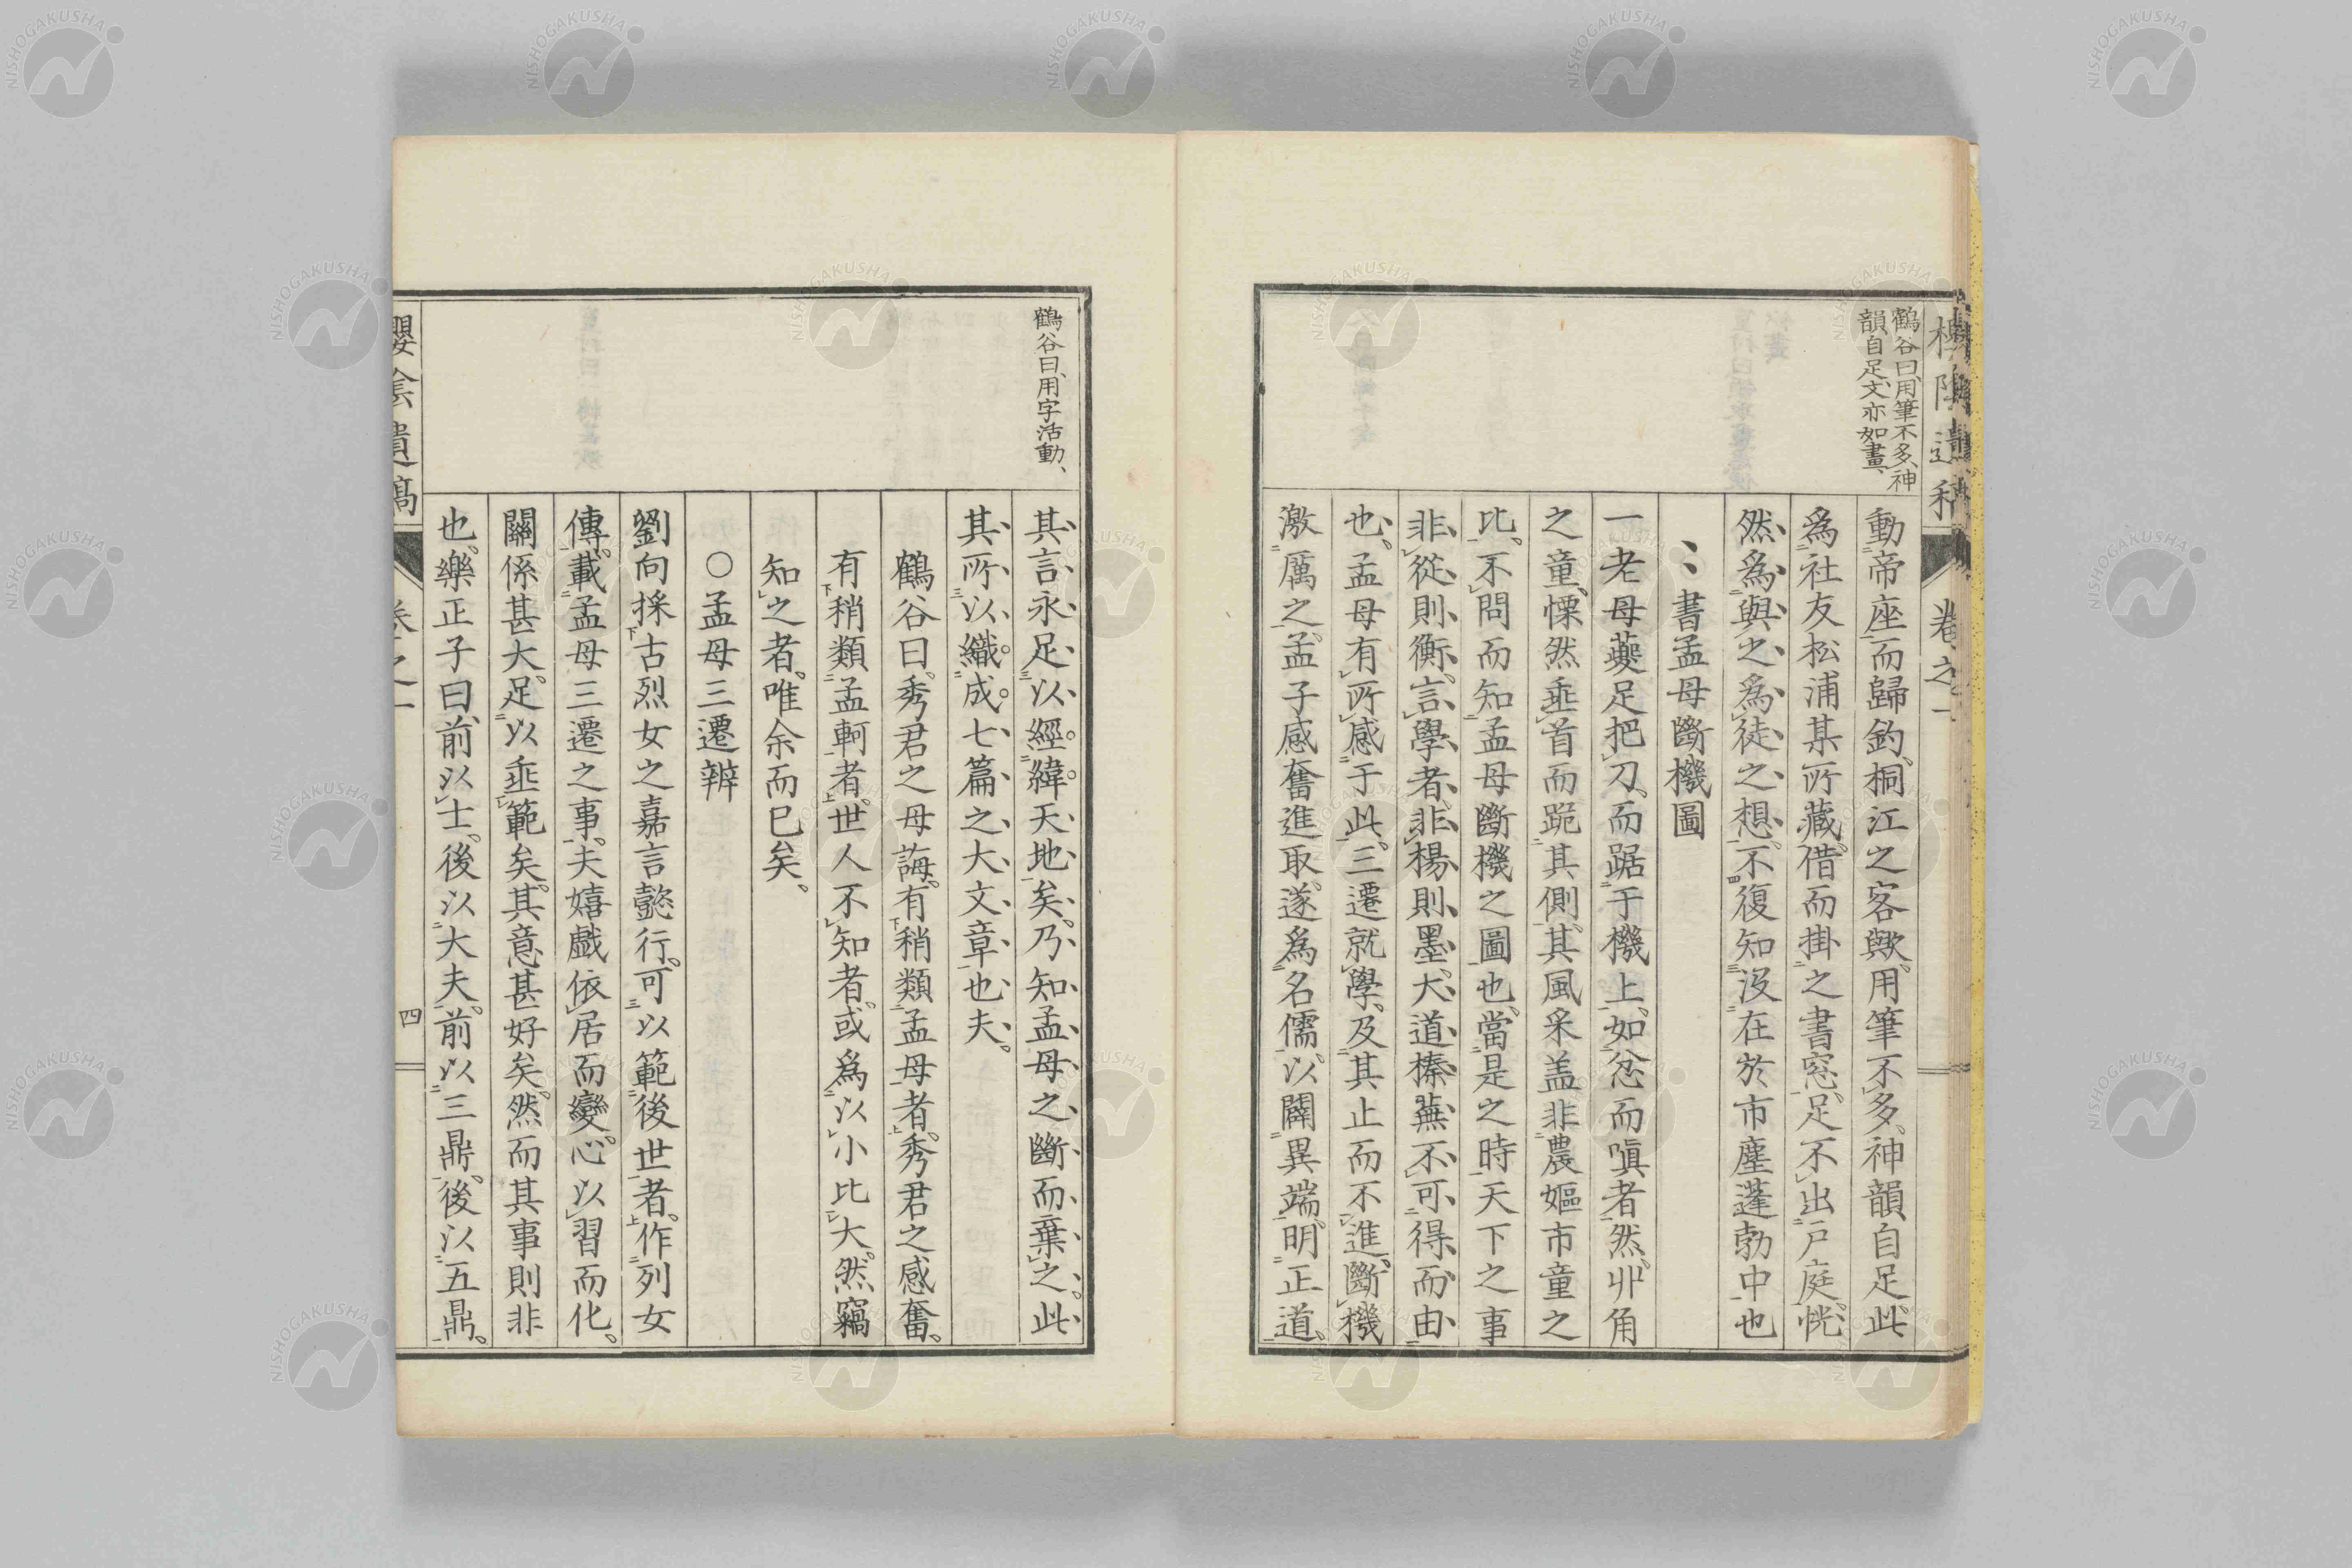 櫻陰遺稿 卷之一
鶴谷曰、用筆不多、神
韻自足、文亦如畫、
動帝座而歸釣、桐江之客歟。用筆不多、神韻自足。此
爲社友松浦某所藏。借而掛之書窓、足不出戸庭、恍
然爲與之爲徒之想。不復知沒在於市塵蓬勃中也
書孟母斷機圖
一老母蘷足把刀、而踞于機上、如忿而嗔者然。丱角
之童、慄然垂首而跪其側。其風采盖非農嫗市童之
比。不問而知孟母斷機之圖也。當是之時、天下之事
非從則衡、言學者、非楊則墨。大道榛蕪、不可得而由
也。孟母有所感于此。三遷就學、及其止而不進、斷機
激厲之。孟子感奮進取。遂爲名儒。以闢異端。明正道。
鶴谷曰、用字活動、
其言永足以經緯天地矣。乃知孟母之斷而棄之。此
其所以織成七篇之大文章也夫。
鶴谷曰。秀君之母誨。有稍類孟母者。秀君之感奮。
有稍類孟軻者。世人不知者。或爲以小比大。然竊
知之者。唯余而已矣。
○孟母三遷辨
劉向採古烈女之嘉言懿行。可以範後世者。作列女
傳。載孟母三遷之事。夫嬉戲依居而變心。以習而化。
關係甚大。足以垂範矣。其意甚好矣。然而其事則非
也。樂正子曰、前以士。後以大夫。前以三鼎。後以五鼎。
櫻陰遺稿 卷之一 四